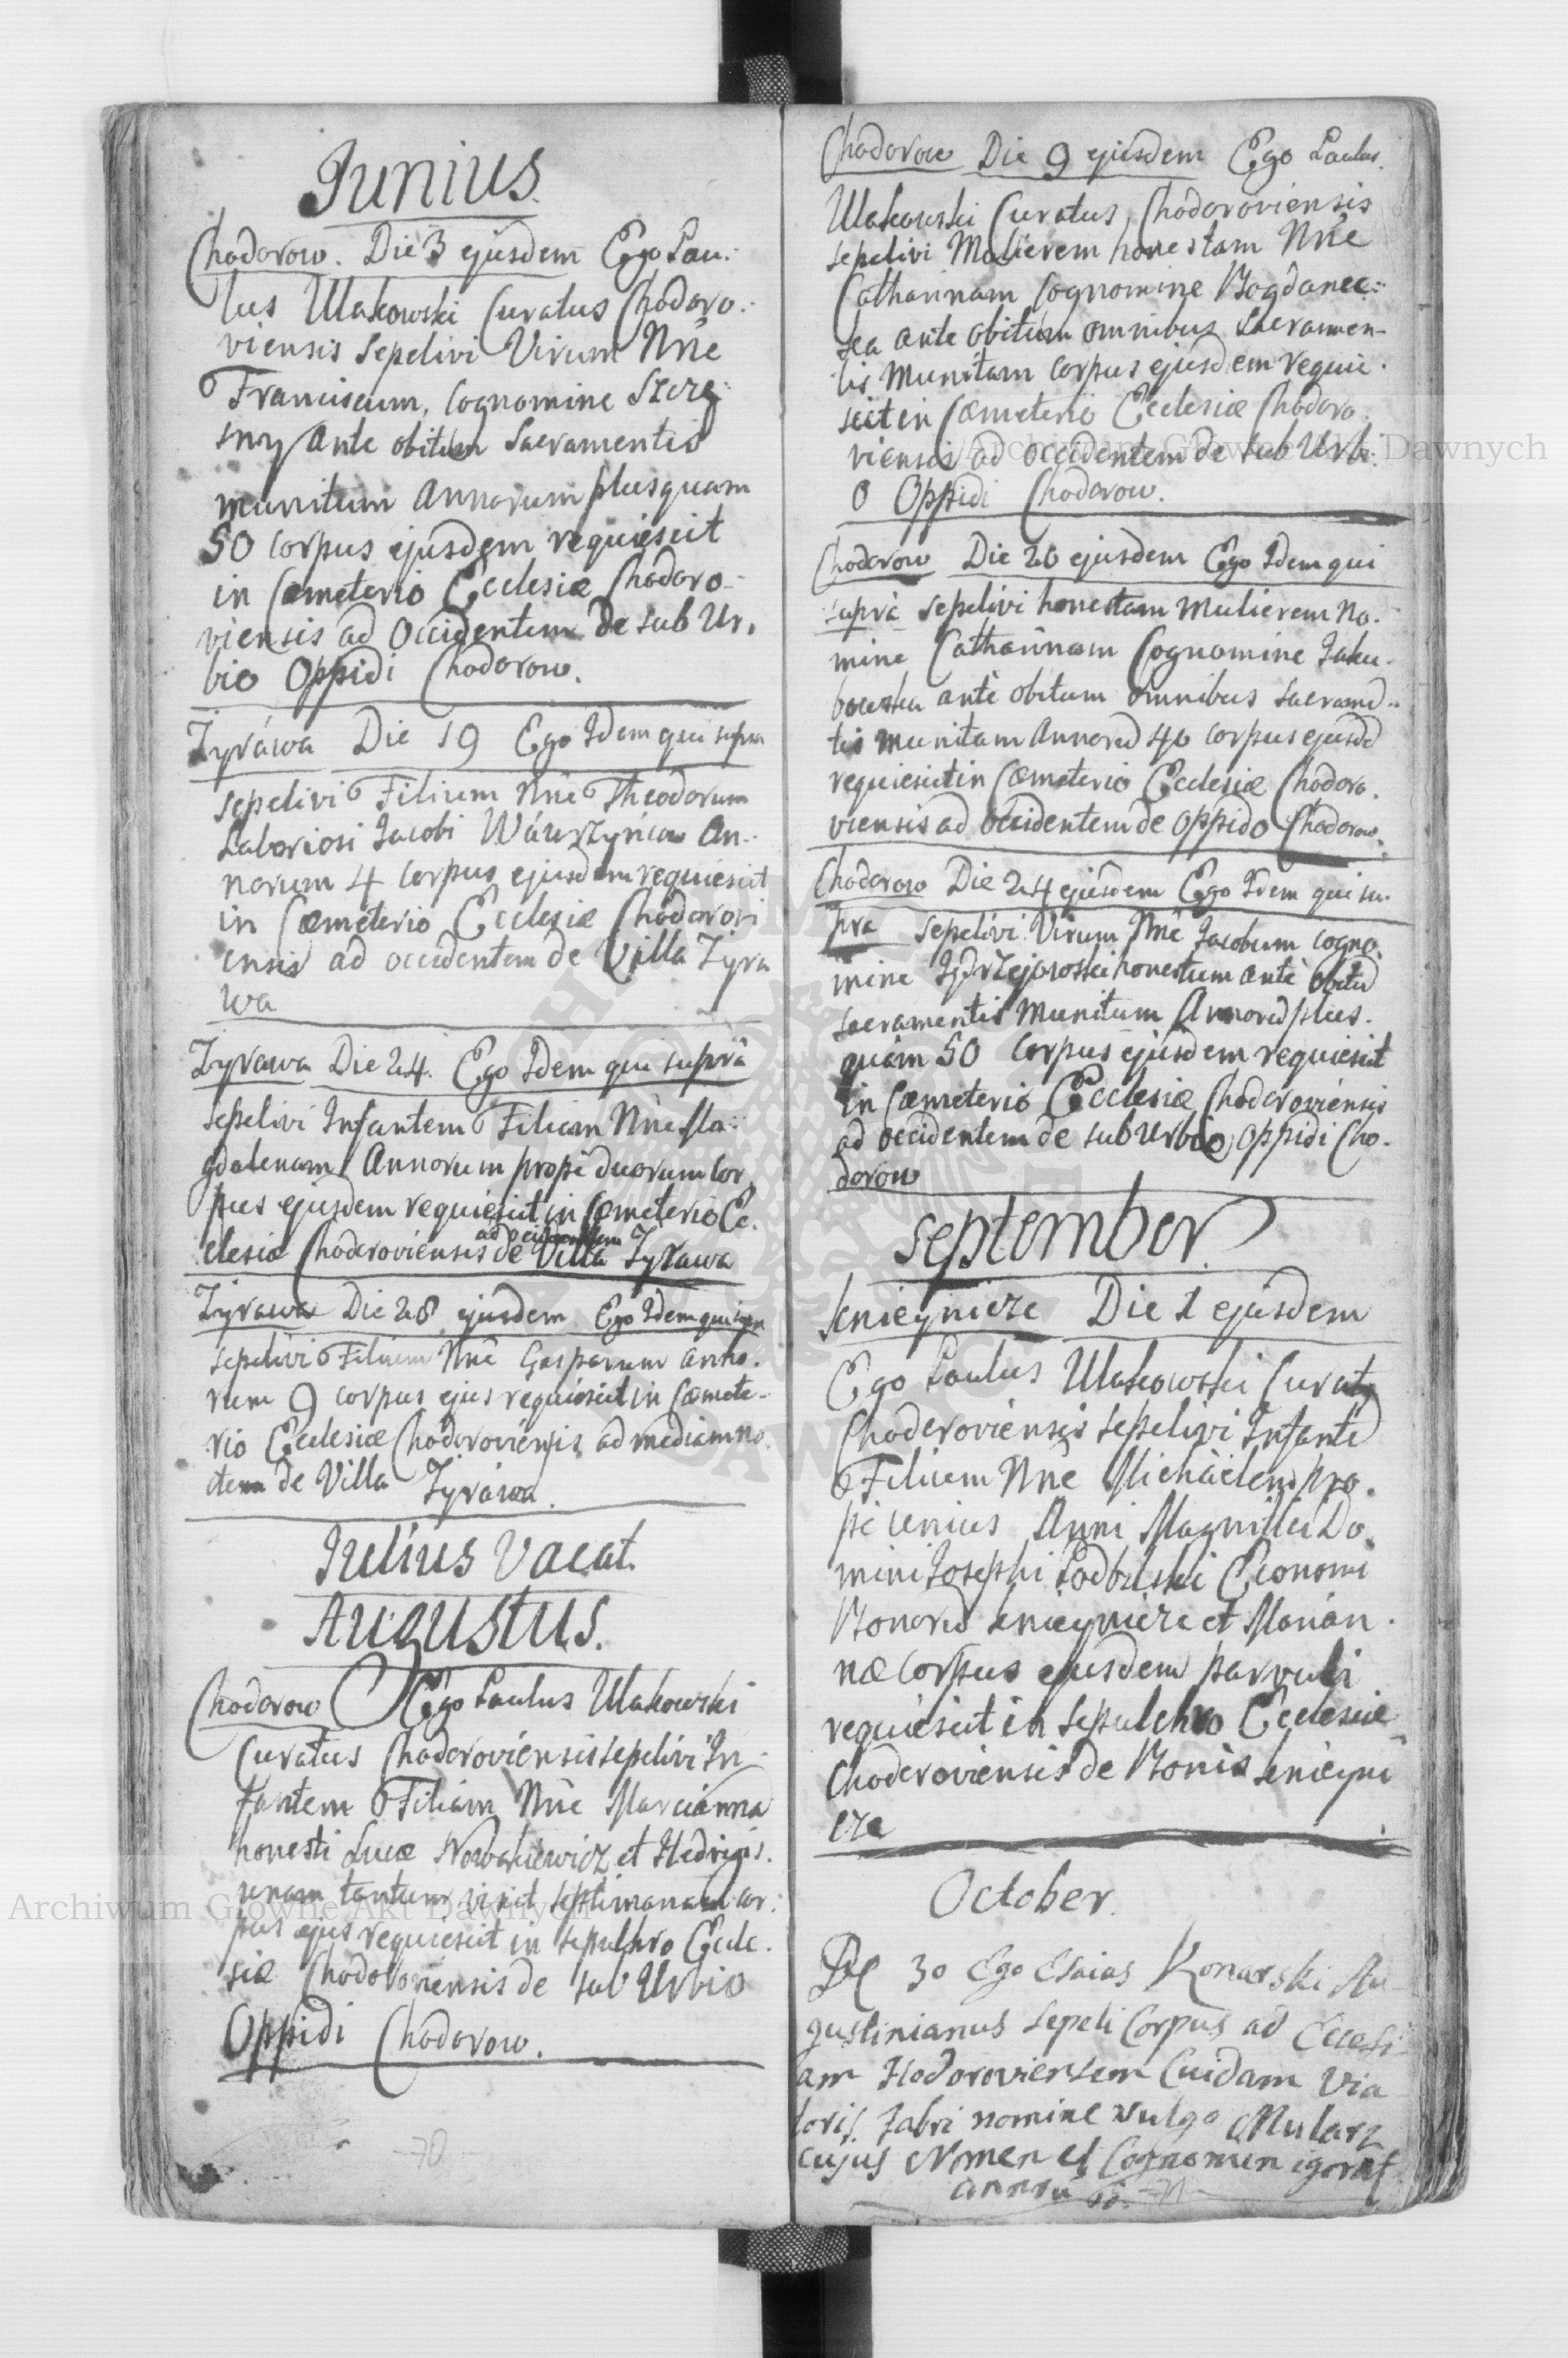 Junius.
Chodorow. Die 3 ejusdem Ego Pau:
lus Ulakowski Curatus Chodoro:
viensis Sepelivi Virum Nñe
Franciscum, Cognomine Szczę:
sny Ante obitum Sacramentis
munitum Annorum plusquam
50 Corpus ejusdem requiescit
in Cœmeterio Ecclesiæ Chodoro-
viensis ad Occidentem de sub Ur,
bio Oppidi Chodorow.
Zyráwa Die 19 Ego Idem qui supra
sepelivi Filium Nñe Theodorum
Laboriosi Jacobi An-
norum 4 Corpus ejusdem requiescit
in Cœmeterio Ecclesiæ Chodorovi
ensis ad occidentem de Villa Zyra
wa
Zyrawa Die 24. Ego Idem qui suprà
sepelivi Infantem Filiam Nñe Ma:
gdalenam Annorum propè duorum Cor
pus ejusdem requiescit in Cœmeterio Ec.
clesiæ Chodoroviensis ad occidentem de Villa Zyrawa
Zyrawa Die 28 ejusdem Ego Idem qui supra
sepelivi Filium Nñe Gasparum anno.
rum 9 corpus ejus requiescit in Cœmete-
rio Ecclesiæ Chodoroviensis ad mediam no
ctem de Villa Zyráwa.
Julius Vacat.
Augustus.
Chodorow Ego Paulus Ulakowski
Curatus Chodoroviensis sepelivi In-
fantem Filiam Nñe Marcianna
honesti Lucæ Nowakiewicz et Hedvigis.
unam tantum vixit septimanam cor:
pus ejus requiescit in sepulchro Eccle.
siæ Chodoroviensis de sub Urbio
Oppidi Chodorow.
70
Chodorow Die 9 ejusdem Ego Paulus
Ulakowski Curatus Chodoroviensis
sepelivi Mulierem honestam Nñe
Catharinam Cognomine Bogdanec:
ka ante obitum omnibus Sacramen-
tis Munitam Corpus ejusdem requie.
scit in Cœmeterio Ecclesiæ Chodoro.
viensis ad Occidentem de sub Urbi:
o Oppidi Chodorow.
Chodorow Die 20 ejusdem Ego Idem qui
suprà sepelivi honestam Mulierem No.
mine Catharinam Cognomine Jaku-
bowska ante obitum omnibus sacramẽ-
tis munitam Annorũ 40 corpus ejusdẽ
requiescit in Cœmeterio Ecclesiæ Chodoro.
viensis ad Occidentem de Oppido Chodorow.
Chodorow Die 24 ejusdem Ego Idem qui su.
pra Sepelivi Virum Nñe Jacobum cogno.
mine Jędrzejowski honestum ante obitũ
sacramentis Munitum Annorũ plus.
quàm 50 Corpus ejusdem requiescit
in Cœmeterio Ecclesiæ Chodoroviensis
ad occidentem de sub Urbio, Oppidi Cho-
dorow
September
Knieynicze Die 1 ejusdem
Ego Paulus Ulakowski Curatus
Chodoroviensis sepelivi Infantẽ
Filium Nñe Michäelem pro.
pè unius Anni Magnifici Do.
mini Josephi Economi
Bonorũ Knieynicze et Marian.
næ Corpus ejusdem parvuli
requiescit in sepulchro Ecclesiæ
Chodoroviensis de Bonis Knieyni
cze
October.
Die 30 Ego Esaias Konarski Au
gustinianus Sepeli Corpus ad Eccesi
am Hodoroviensem Cuidam via
toris fabri nomine vulgo Mularz
cujus Nomen et Cognomen
71
Archiwum Główne Akt Dawnych
Archiwum Główne Akt Dawnych